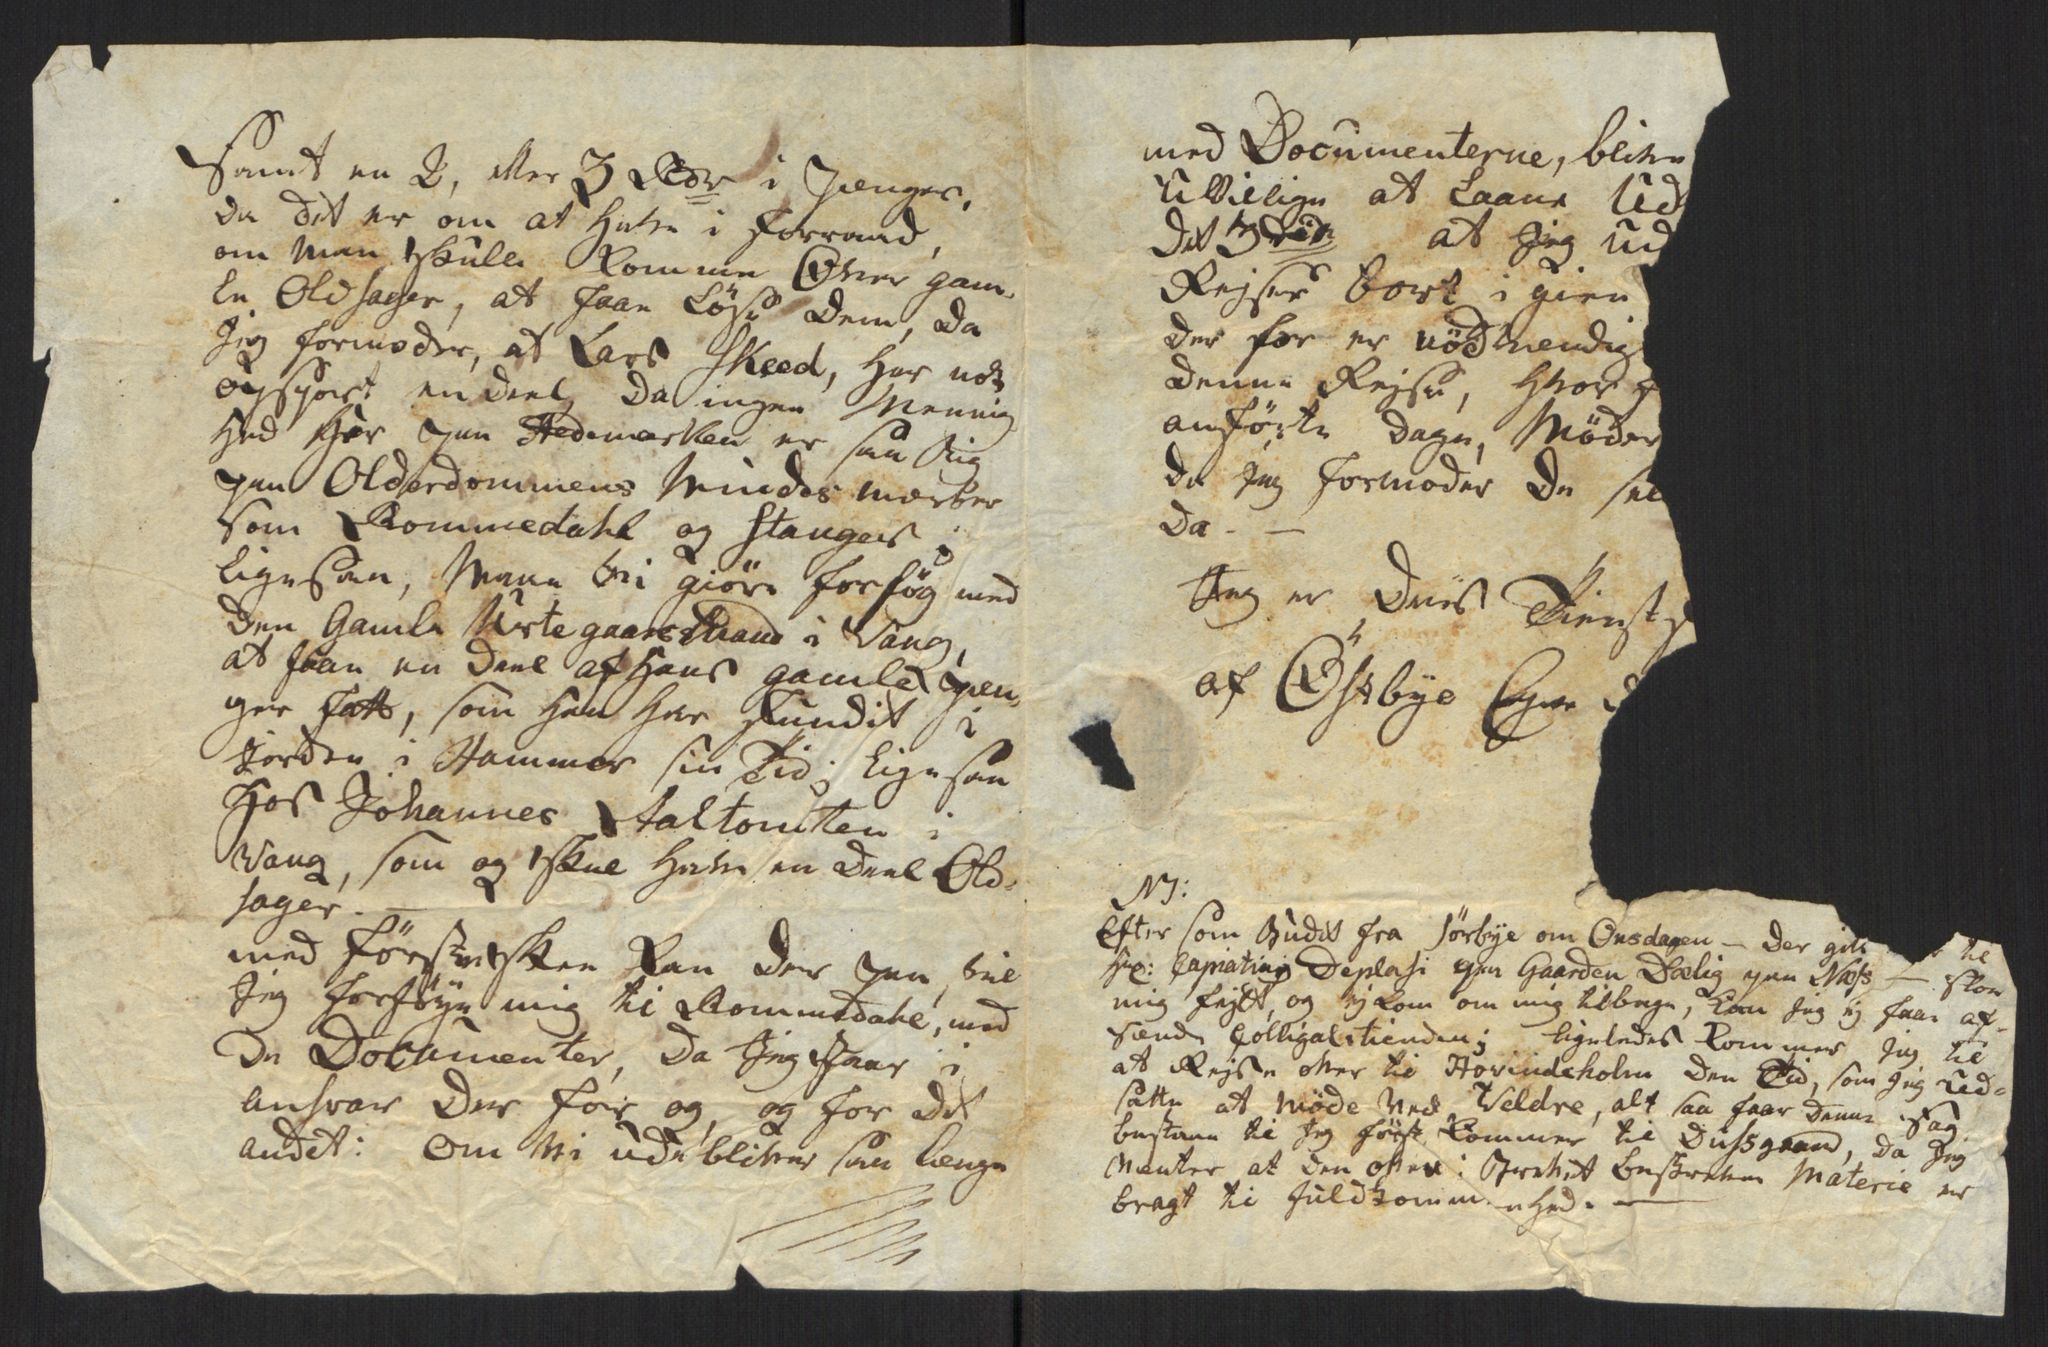 Samt en 2, eller 3 Rdr i Penger,
da det er om at have i forraad,
om man skulle komme Over gam-
le Oldsager, at faae Løse dem, da
Jeg formoder, at Lars Skeed, har nok
opsport en deel, da ingen Mennig
hed her paa Hedemarken er saa Riig
paa Olderdommens Mindes mærker
som Rommedahl og Stanges.
ligesaa, Maae vi giöre forsøg med
den Gamle Urtegaards Mand i Vang,
at faae en deel af Hans gamle pen-
ger fatt, som han har fundet i
Jorden i Hammer sin Tid; ligesaa
hos Johannes Aaltomten i
Vang, som og skal have en deel Old-
sager. —
med første skee kan der paa, vil
Jeg forføye mig til Rommedahl, med
de Documenter, da Jeg staar i
ansvar der for og, og for det
andet: Om vi udebliver saa længe
med Documenterne, bliver
Uvillige at Laane Ud
det 3die at Jeg ud
Rejser bort igien
der for er nödvendig
denne Rejse, hvor
anförte dage, Möder
da Jeg formoder De
da. —
Jeg er Deris Tienst
af Östbye
NJ:
Efter som Budet fra Sörbye om Onsdagen — der gik til
Hr: Capitaine paa Gaarden Dælig paa Næss —
mig fejlt, og ej kom om mig tilbage, kan Jeg ej faae af-
sende ligeledes kommer Jeg til
at Rejse over til Hovindsholm den Tid, som Jeg ud-
satte at möde ved Veldre, alt saa faar denne Sag
bestaae til Jeg först kommer til Dussgaard, da Jeg
venter at den oven beskreven Materie er
bragt til fuldkommenhed. —